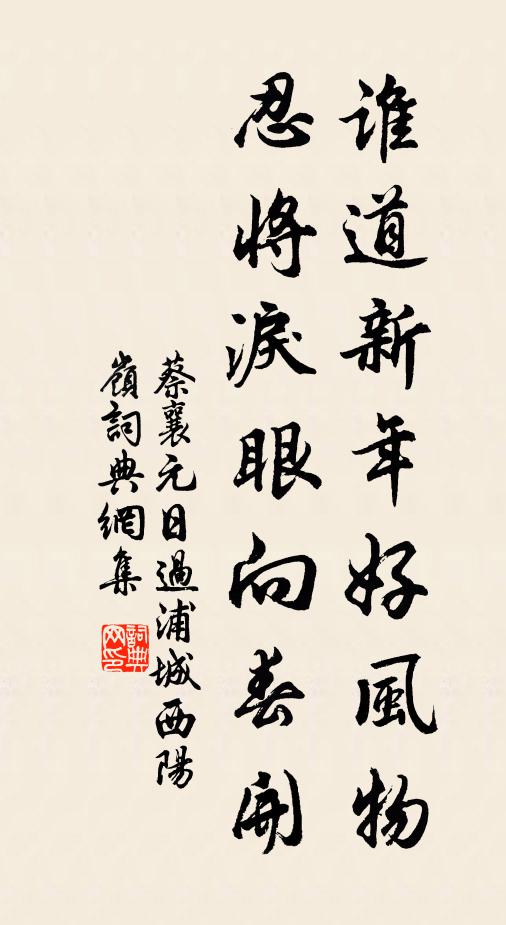 誰道新年好風物
忍將淚眼向春開
蔡襄元日過浦城西陽
嶺詞典網集
詞典
网印